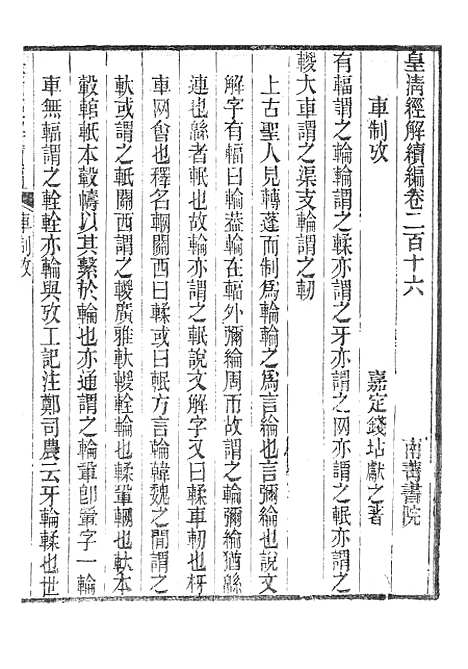 皇清經解續編卷二百十六
南菁書院
車制攷
嘉定錢坫獻之著
有輻謂之輪輪謂之輮亦謂之牙亦謂之网亦謂之軝亦謂之
輚大車謂之渠支輪謂之軔
上古聖人見轉蓬而制爲輪輪之爲言綸也言彌綸也說文
解字有輻曰輪葢輪在輻外彌綸周而故謂之輪彌綸猶緜
連也緜者軝也故輪亦謂之軝說文解字又曰輮車軔也枒
車网會也釋名輞關西曰輮或曰軝方言輪韓魏之閒謂之
軑或謂之軝關西謂之輚廣雅軑輚輇輪也輮鞏輞也軑本
轂輨軝本轂幬以其繫於輪也亦通謂之輪
車無輻謂之輇輇亦輪與攷工記注鄭司農云牙輪輮也世
車制攷